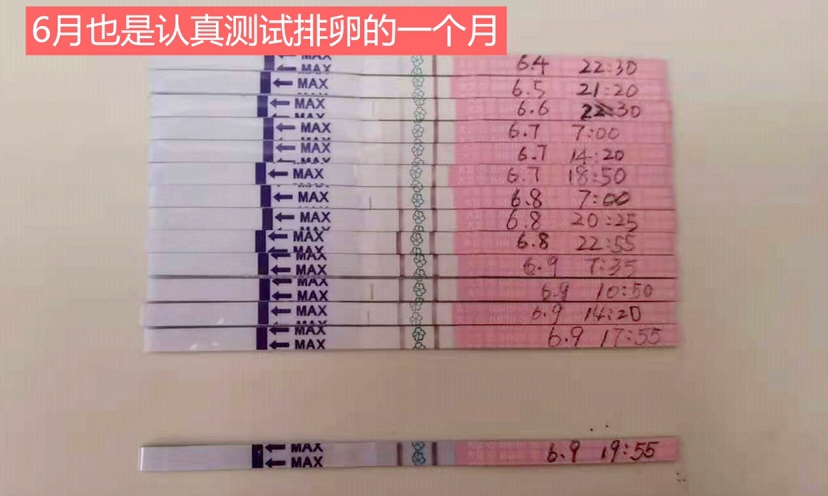 6月也是认真测试排卵的一个月
MAX 6.4 22:30
MAX 6.5 21:20
MAX 6.6 22:30
MAX 6.7 7:00
MAX 6.7 14:20
MAX 6.7 18:50
MAX 6.8 7:00
MAX 6.8 20:25
MAX 6.8 22:55
MAX 6.9 7:35
MAX 6.9 10:50
MAX 6.9 14:20
MAX
MAX 6.9 17:55
MAX
MAX 6.9 19:55